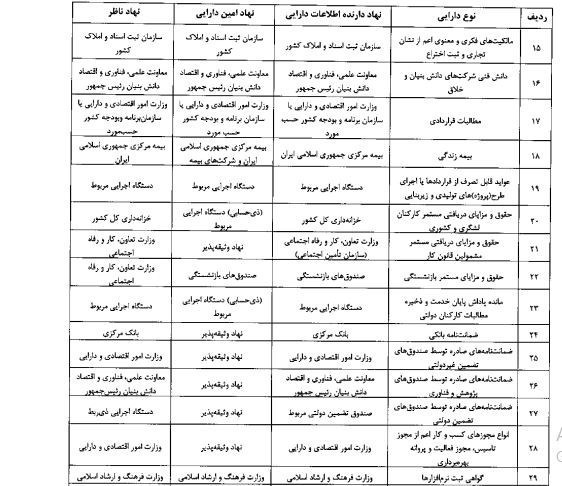 ردیف نوع دارایی نهاد دارنده اطلاعات دارایی نهاد امین دارایی نهاد ناظر
۱۵ مالکیت‌های فکری و معنوی اعم از نشان تجاری و ثبت اختراع سازمان ثبت اسناد و املاک کشور سازمان ثبت اسناد و املاک کشور سازمان ثبت اسناد و املاک کشور
۱۶ دانش فنی شرکت‌های دانش بنیان و خلاق معاونت علمی، فناوری و اقتصاد دانش بنیان رئیس جمهور معاونت علمی، فناوری و اقتصاد دانش بنیان رئیس جمهور معاونت علمی، فناوری و اقتصاد دانش بنیان رئیس جمهور
۱۷ مطالبات قراردادی وزارت امور اقتصادی و دارایی یا سازمان برنامه و بودجه کشور حسب مورد وزارت امور اقتصادی و دارایی یا سازمان برنامه و بودجه کشور حسب مورد وزارت امور اقتصادی و دارایی یا سازمان‌برنامه وبودجه کشور حسب‌مورد
۱۸ بیمه زندگی بیمه مرکزی جمهوری اسلامی ایران بیمه مرکزی جمهوری اسلامی ایران و شرکت‌های بیمه بیمه مرکزی جمهوری اسلامی ایران
۱۹ عواید قابل تصرف از قراردادها یا اجرای طرح(پروژه)های تولیدی و زیربنایی دستگاه اجرایی مربوط دستگاه اجرایی مربوط دستگاه اجرایی مربوط
۲۰ حقوق و مزایای دریافتی مستمر کارکنان لشگری و کشوری دستگاه اجرایی مربوط (ذی‌حسابی) دستگاه اجرایی مربوط خزانه‌داری کل کشور
۲۱ حقوق و مزایای دریافتی مستمر مشمولین قانون کار وزارت تعاون، کار و رفاه اجتماعی (سازمان تأمین اجتماعی) نهاد وثیقه‌پذیر وزارت تعاون، کار و رفاه اجتماعی
۲۲ حقوق و مزایای مستمر بازنشستگی صندوق‌های بازنشستگی صندوق‌های بازنشستگی وزارت تعاون، کار و رفاه اجتماعی
۲۳ مانده پاداش پایان خدمت و ذخیره مطالبات کارکنان دولتی دستگاه اجرایی مربوط (ذی‌حسابی) دستگاه اجرایی مربوط دستگاه اجرایی مربوط
۲۴ ضمانت‌نامه بانکی بانک مرکزی نهاد وثیقه‌پذیر بانک مرکزی
۲۵ ضمانت‌نامه‌های صادره توسط صندوق‌های تضمین غیردولتی وزارت امور اقتصادی و دارایی نهاد وثیقه‌پذیر وزارت امور اقتصادی و دارایی
۲۶ ضمانت‌نامه‌های صادره توسط صندوق‌های پژوهش و فناوری معاونت علمی، فناوری و اقتصاد دانش بنیان رئیس جمهور نهاد وثیقه‌پذیر معاونت علمی، فناوری و اقتصاد دانش بنیان رئیس‌جمهور
۲۷ ضمانت‌نامه‌های صادره توسط صندوق‌های تضمین دولتی صندوق تضمین دولتی مربوط نهاد وثیقه‌پذیر دستگاه اجرایی ذی‌ربط
۲۸ انواع مجوزهای کسب و کار اعم از مجوز تاسیس، مجوز فعالیت و پروانه بهره‌برداری وزارت امور اقتصادی و دارایی نهاد وثیقه‌پذیر وزارت امور اقتصادی و دارایی
۲۹ گواهی ثبت نرم‌افزارها وزارت فرهنگ و ارشاد اسلامی وزارت فرهنگ و ارشاد اسلامی وزارت فرهنگ و ارشاد اسلامی